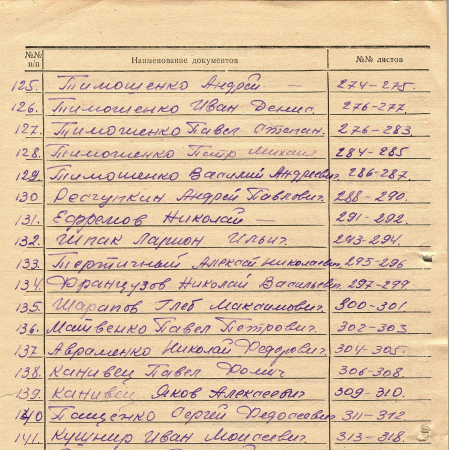 №№ п/п Наименование документов №№ листов
125. Тимошенко Андрей — 274-275.
126. Тимошенко Иван Денис. 276-277.
127. Тимошенко Павел Степан. 276-283.
128. Тимошенко Петр Михаил 284-285
129. Тимошенко Василий Андреевич. 286-287.
130 Андрей Павлович. 288-290.
131. Ефремов Николай — 291-292.
132. Шпак Ларион Ильич. 293-294.
133. Тертичный Алексей Николаевич. 295-296
134. Французов Николай Васильевич. 297-299
135. Шарапов Глеб Максимович. 300-301.
136. Матвенко Павел Петрович. 302-303.
137 Авраменко Николай Федорович. 304-305.
138. Канивец Павел Фомич 306-308.
139. Канивец Яков Алексеевич 309-310.
140 Пащенко Сергей Федосеевич 311-312
141. Кушнир Иван Моисеевич. 313-318.